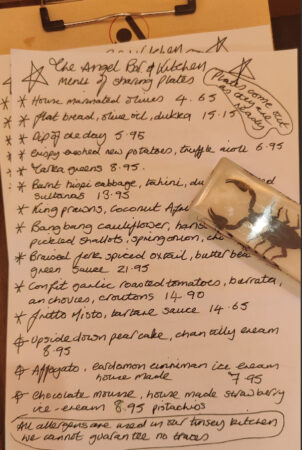 Kitchen
The Angel Bar & Kitchen
Menu of sharing Plates
Plates come out as and when ready
* House marinated olives 4.65
* flat bread, olive oil, dukka
* Dip of the day 5.95
* Crispy smashed new potatoes, truffle aioli 6.95
* greens 8.95.
* Burnt hispi cabbage, tahini,
sultanas 13.95
* King prawns, coconut
* Bang bang cauliflower,
pickled shallots, spring onion,
* Braised pork, spiced oxtail, butter bea
green sauce 21.95
* Confit garlic roasted tomatoes, burrata,
anchovies, croutons 14.90
* fritto Misto, tartare sauce 14.65
Upside down pear cake, chantilly cream
8.95
Affogato, cardamon cinniman ice cream
house made 7.95
Chocolate mousse, house made strawberry
ice-cream 8.95 pistachios
All allergens are used in our kitchen
We cannot guarantee no traces